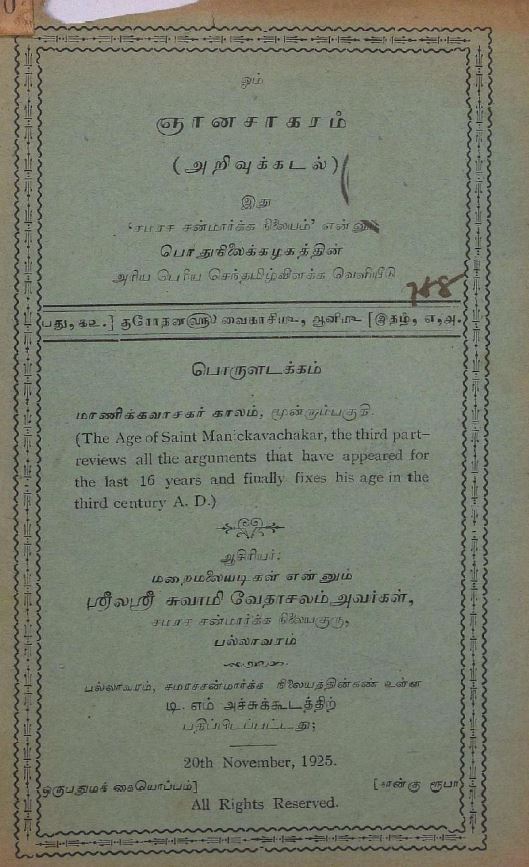 ஓம்
ஞானசாகரம்
(அறிவுக்கடல்)
இது
'சமரச சன்மார்க்க நிலையம்' என்னும்
பொதுநிலைக்கழகத்தின்
அரிய பெரிய செந்தமிழ்விளக்க வெளியீடு
788
பது, க௨.] குரோதன௵ வைகாசி௴, ஆனி௴ [இதழ், எ,அ.
பொருளடக்கம்
மாணிக்கவாசகர் காலம், மூன்றாம்பகுதி.
(The Age of Saint Manickavachakar, the third part—
reviews all the arguments that have appeared for
the last 16 years and finally fixes his age in the
third century A. D.)
ஆசிரியர்:
மறைமலையடிகள் என்னும்
ஸ்ரீலஸ்ரீ சுவாமி வேதாசலம் அவர்கள்,
சமரச சன்மார்க்க நிலையகுரு,
பல்லாவரம்
பல்லாவரம், சமரசசன்மார்க்க நிலையத்தின்கண் உள்ள
டி. எம் அச்சுக்கூடத்திற்
பதிப்பிடப்பட்டது;
20th November, 1925.
ஒருபதுமக் கையொப்பம்] [நான்கு ரூபா
All Rights Reserved.